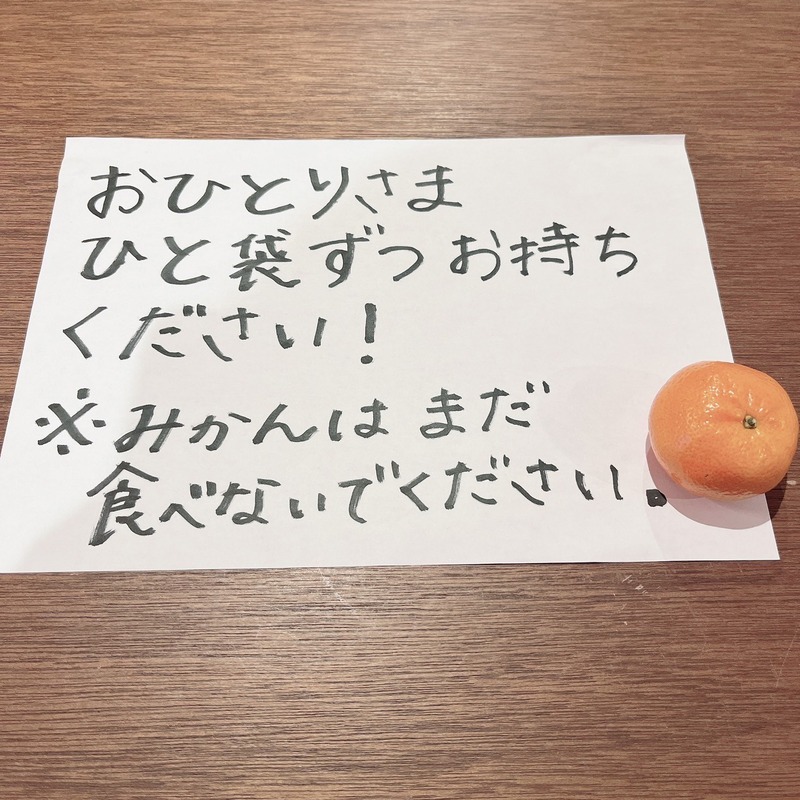 おひとりさま
ひと袋ずつお持ち
ください!
※みかんは まだ
食べないでください。